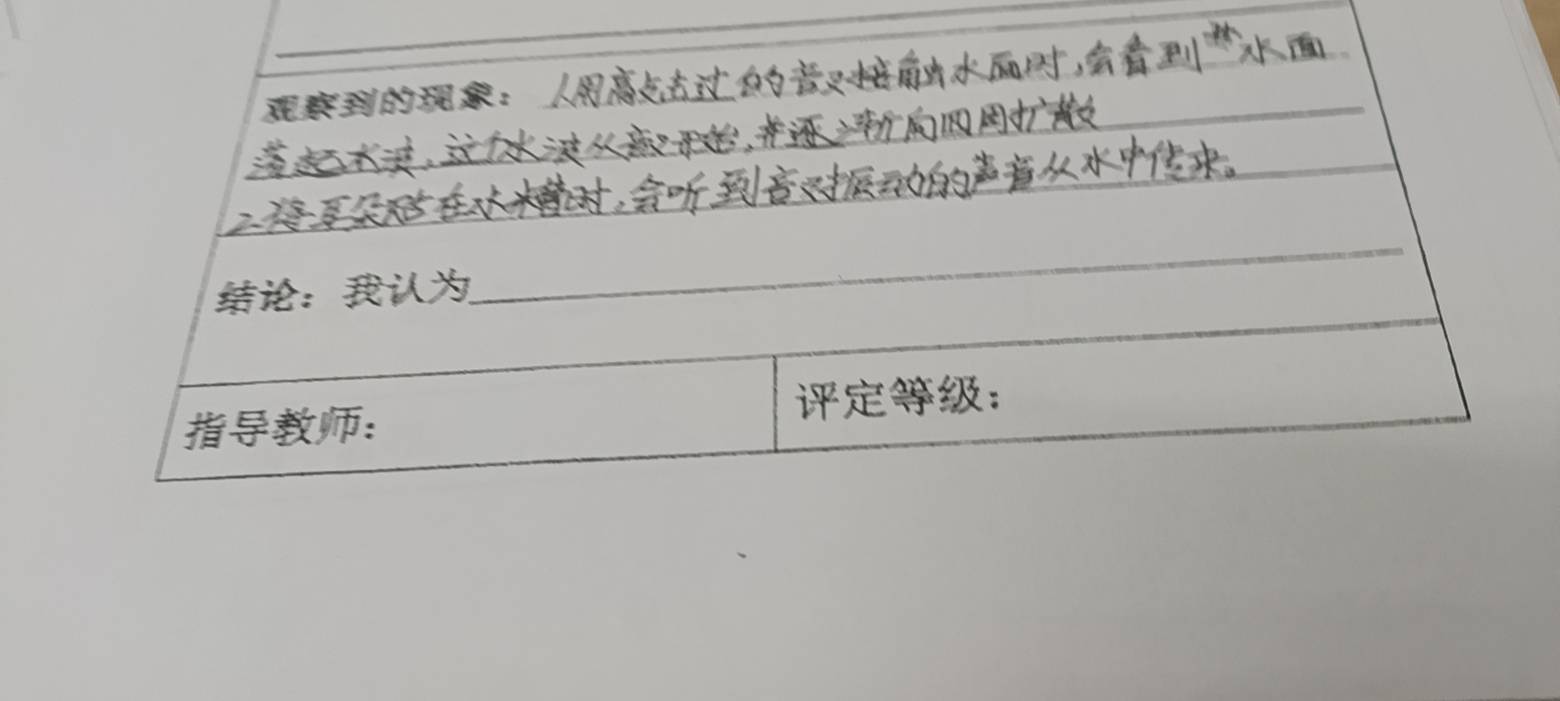 观察到的现象：1.用敲击过的音叉接触水面时，会看到水面
荡起水波，这个水波从音叉开始，并逐渐向四周扩散
2.将耳朵贴在水槽时，会听到音叉振动的声音从水中传来。
结论：我认为
指导教师：
评定等级：